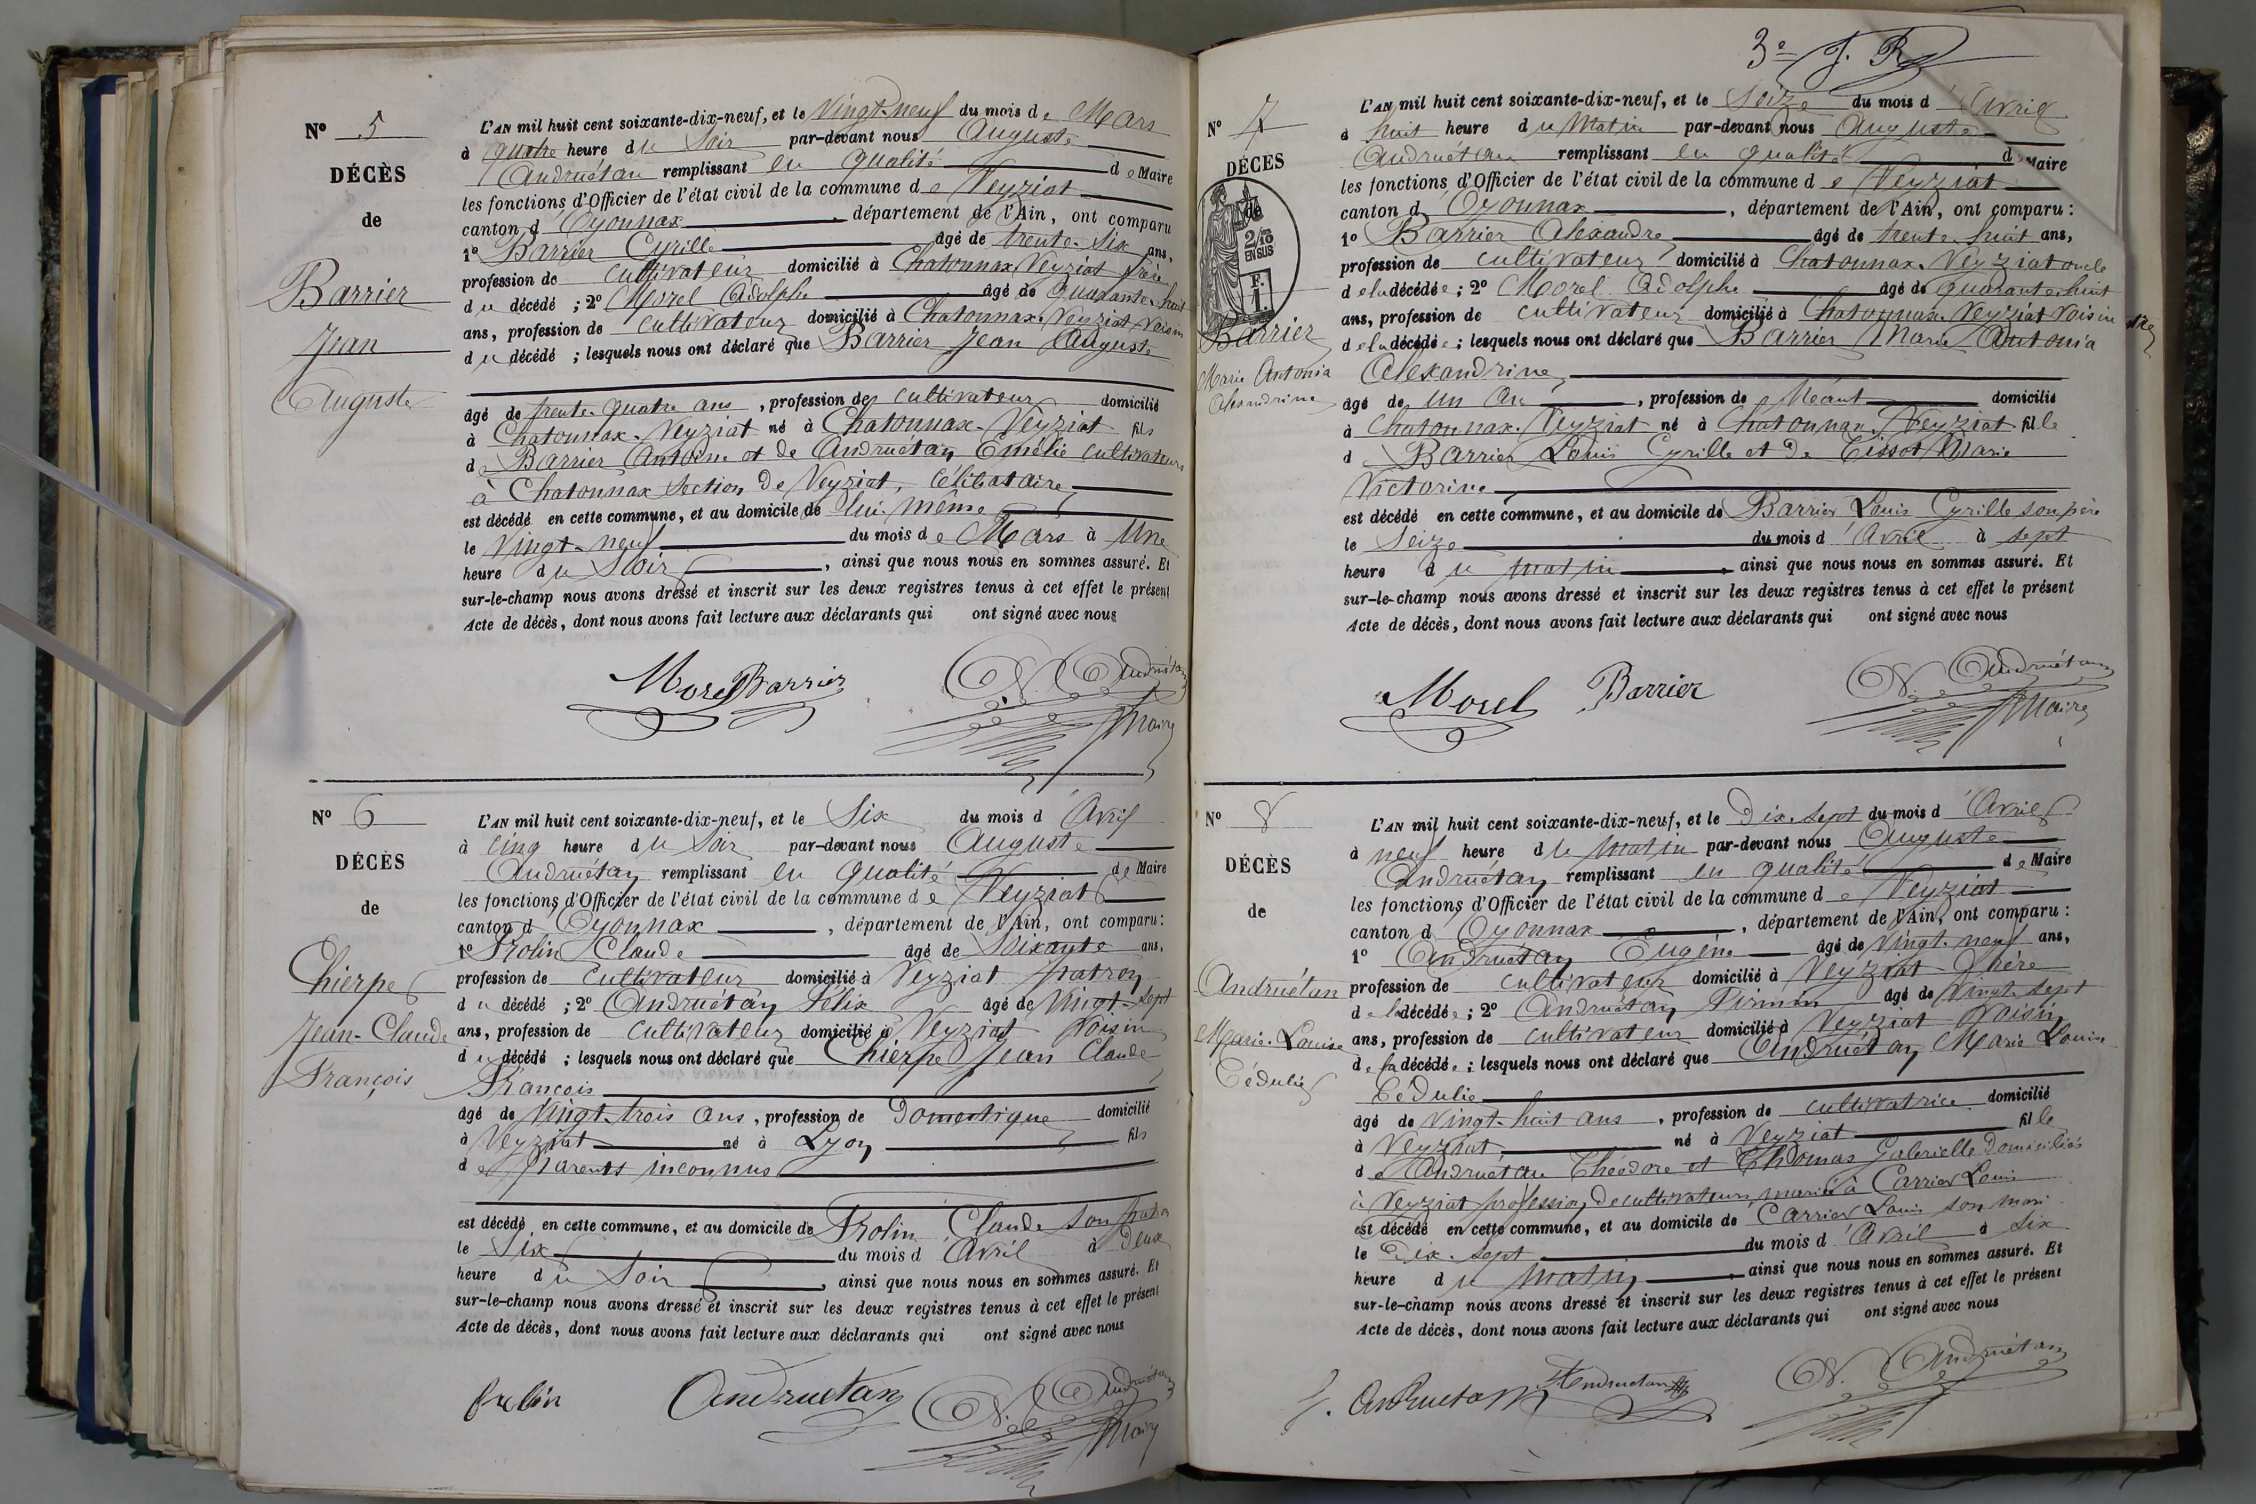 N° 5
DÉCÈS
de
Barrier
Jean
Auguste
L'AN mil huit cent soixante-dix-neuf, et le Vingt-neuf du mois de Mars
à quatre heure du Soir par-devant nous Auguste
Andruétan remplissant en qualité de Maire
les fonctions d'Officier de l'état civil de la commune de Veyziat
canton d'Oyonnax, département de l'Ain, ont comparu
1° Barrier Cyrille âgé de trente-six ans,
profession de cultivateur domicilié à Chatonnax Veyziat frère
du décédé ; 2° Morel Adolphe âgé de quarante-huit
ans, profession de cultivateur domicilié à Chatonnax-Veyziat voisin
du décédé ; lesquels nous ont déclaré que Barrier Jean Auguste
âgé de trente-quatre ans, profession de cultivateur domicilié
à Chatonnax-Veyziat né à Chatonnax-Veyziat fils
de Barrier Antoine et de Andruétan Emélie cultivateurs
à Chatonnax section de Veyziat, Célibataire
est décédé en cette commune, et au domicile de lui-même
le Vingt-neuf du mois de Mars à Une
heure du Soir, ainsi que nous nous en sommes assuré. Et
sur-le-champ nous avons dressé et inscrit sur les deux registres tenus à cet effet le présent
Acte de décès, dont nous avons fait lecture aux déclarants qui ont signé avec nous
Morel Barrier Andruétan
Maire
N° 6
DÉCÈS
de
Chierpe
Jean-Claude
François
L'AN mil huit cent soixante-dix-neuf, et le Six du mois d'Avril
à Cinq heure du Soir par-devant nous Auguste
Andruétan remplissant en qualité de Maire
les fonctions d'Officier de l'état civil de la commune de Veyziat
canton d'Oyonnax, département de l'Ain, ont comparu :
1° Frolin Claude âgé de Soixante ans,
profession de Cultivateur domicilié à Veyziat patron
du décédé ; 2° Andruétan Félix âgé de Vingt-sept
ans, profession de cultivateur domicilié à Veyziat Voisin
du décédé ; lesquels nous ont déclaré que Chierpe Jean Claude
François
âgé de Vingt-trois ans, profession de Domestique domicilié
à Veyziat né à Lyon fils
de parents inconnus
est décédé en cette commune, et au domicile de Frolin Claude son patron
le Six du mois d'Avril à Deux
heure du Soir, ainsi que nous nous en sommes assuré. Et
sur-le-champ nous avons dressé et inscrit sur les deux registres tenus à cet effet le présent
Acte de décès, dont nous avons fait lecture aux déclarants qui ont signé avec nous
frolin Andruetan Andruétan
Maire
3e
N° 7
DÉCÈS
de
2/10
EN SUS
F.
1
Barrier
Marie Antonia
Alexandrine
L'AN mil huit cent soixante-dix-neuf, et le Seize du mois d'Avril
à huit heure du Matin par-devant nous Auguste
Andruétan remplissant en qualité de Maire
les fonctions d'Officier de l'état civil de la commune de Veyziat
canton d'Oyonnax, département de l'Ain, ont comparu :
1° Barrier Alexandre âgé de trente-huit ans,
profession de cultivateur domicilié à Chatonnax-Veyziat oncle
de la décédée ; 2° Morel Adolphe âgé de quarante-huit
ans, profession de cultivateur domicilié à Chatonnax-Veyziat voisin
de la décédée ; lesquels nous ont déclaré que Barrier Marie Antonia
Alexandrine
âgé de un an, profession de Néant domicilié
à Chatonnax-Veyziat né à Chatonnax-Veyziat fille
d Barrier Louis Cyrille et de Tissot Marie
Victorine
est décédé en cette commune, et au domicile de Barrier Louis Cyrille son père
le Seize du mois d'Avril à sept
heure du matin, ainsi que nous nous en sommes assuré. Et
sur-le-champ nous avons dressé et inscrit sur les deux registres tenus à cet effet le présent
Acte de décès, dont nous avons fait lecture aux déclarants qui ont signé avec nous
Morel Barrier Andruétan
Maire
N° 8
DÉCÈS
de
Andruétan
Marie-Louise
Cédulie
L'AN mil huit cent soixante-dix-neuf, et le Dix-sept du mois d'Avril
à neuf heure du matin par-devant nous Auguste
Andruétan remplissant en qualité de Maire
les fonctions d'Officier de l'état civil de la commune de Veyziat
canton d'Oyonnax, département de l'Ain, ont comparu :
1° Andruétan Eugène âgé de Vingt-neuf ans,
profession de cultivateur domicilié à Veyziat frère
de la décédée ; 2° Andruétan Firmin âgé de Vingt-sept
ans, profession de cultivateur domicilié à Veyziat Voisin
de la décédée ; lesquels nous ont déclaré que Andruétan Marie Louise
Cédulie
âgé de vingt-huit ans, profession de cultivatrice domicilié
à Veyziat né à Veyziat fille
de Andruétan Théodore et Thomas Gabrielle Domiciliés
à Veyziat profession de cultivateurs, mariée à Carrier Louis
est décédé en cette commune, et au domicile de Carrier Louis son mari
le Dix-sept du mois d'Avril à Six
heure du matin, ainsi que nous nous en sommes assuré. Et
sur-le-champ nous avons dressé et inscrit sur les deux registres tenus à cet effet le présent
Acte de décès, dont nous avons fait lecture aux déclarants qui ont signé avec nous
Andruetan Andruetan Andruétan